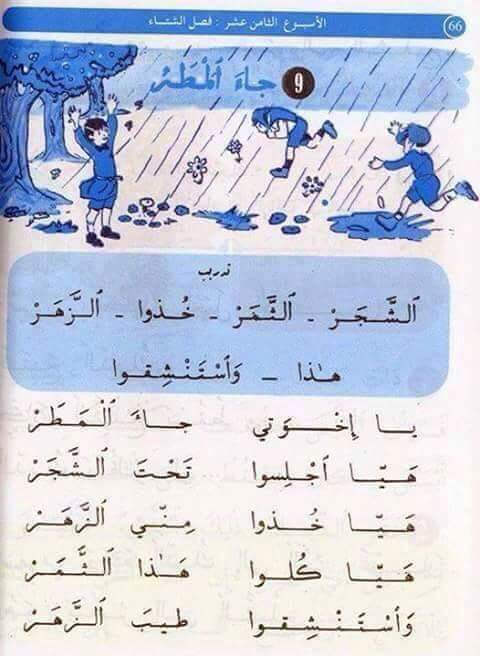 66
الأسبوع الثامن عشر : فصل الشتاء
9 جَاءَ ٱلْمَطَرْ
تدريب
ٱلشَّجَرْ - ٱلثَّمَرْ - خُذوا - ٱلزَّهَرْ
هٰذا - وَٱسْتَنْشِقوا
يا إِخْوَتي جاءَ ٱلْمَطَرْ
هَيّا ٱجْلِسوا تَحْتَ ٱلشَّجَرْ
هَيّا خُذوا مِنّي ٱلزَّهَرْ
هَيّا كُلوا هَٰذا ٱلثَّمَرْ
وَٱسْتَنْشِقوا طيبَ ٱلزَّهَرْ